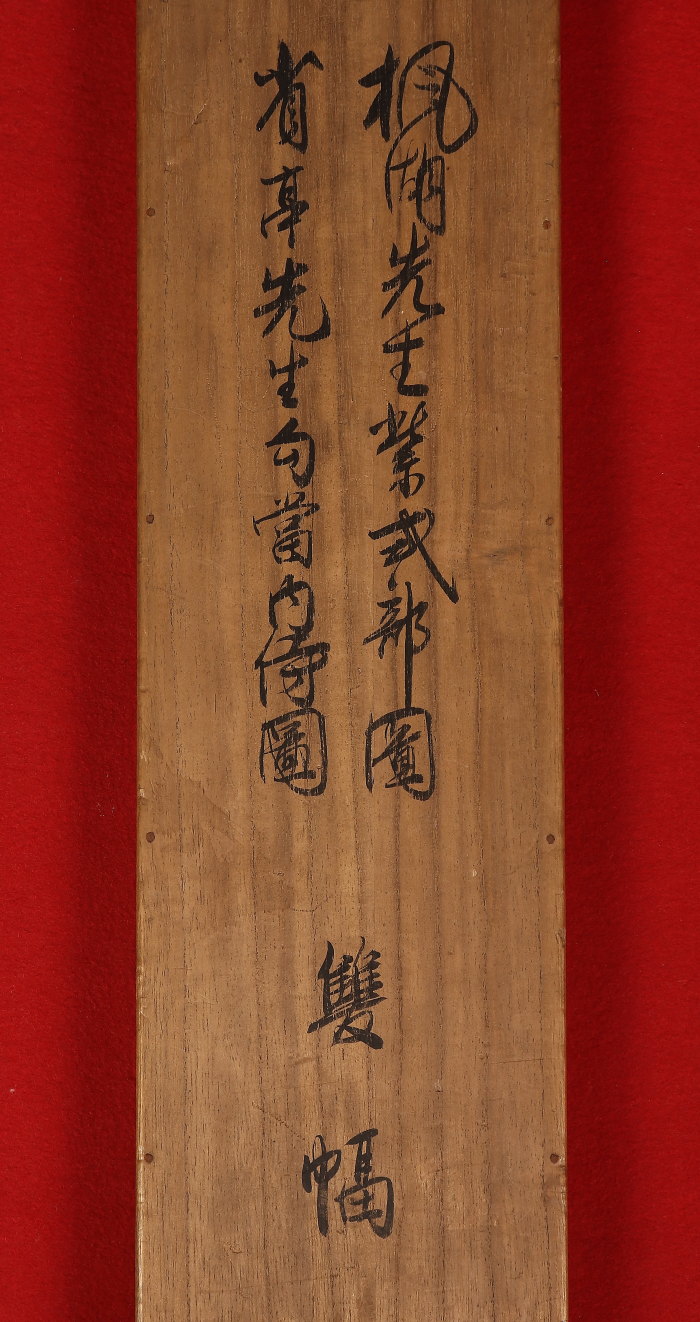 楓湖先生紫式部圖
省亭先生勾當内侍圖
雙幅